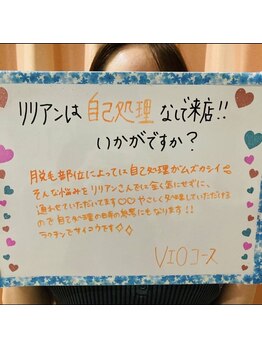 リリアンは自己処理なしで来店!!
いかがですか?
脱毛部位によっては自己処理がムズカシイ
そんな悩みをリリアンさんでは全く気にせずに、
通わせていただいてます♡♡ やさしく対応していただける
ので自己処理の日の
にもなります!!
ラクチンでサイコウです◇◇
VIOコース